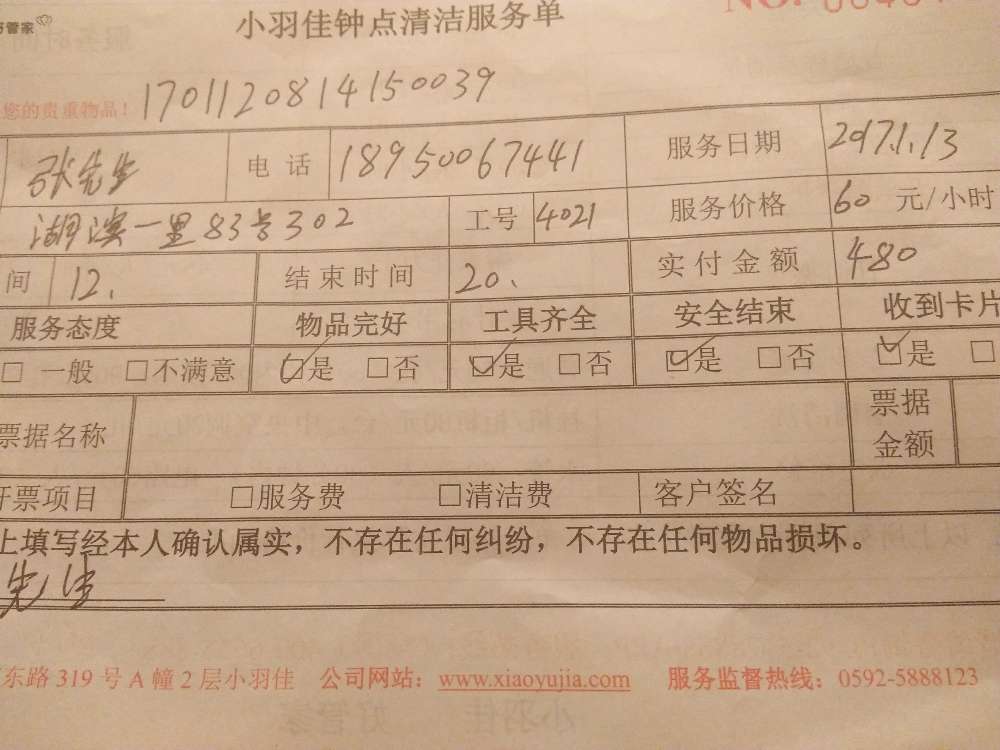 管家
小羽佳钟点清洁服务单
NO.
您的贵重物品！ 1701120814150039
张先生 电话 18950067441 服务日期 2017.1.13
湖滨一里83号302 工号 4021 服务价格 60 元/小时
间 12. 结束时间 20. 实付金额 480
服务态度 物品完好 工具齐全 安全结束 收到卡片
□ 一般 □不满意 ☑是 □否 ☑是 □否 ☑是 □否 ☑是 □
票据名称 票据金额
开票项目 □服务费 □清洁费 客户签名
上填写经本人确认属实，不存在任何纠纷，不存在任何物品损坏。
先生
东路 319 号 A 幢 2 层小羽佳 公司网站：www.xiaoyujia.com 服务监督热线：0592-5888123